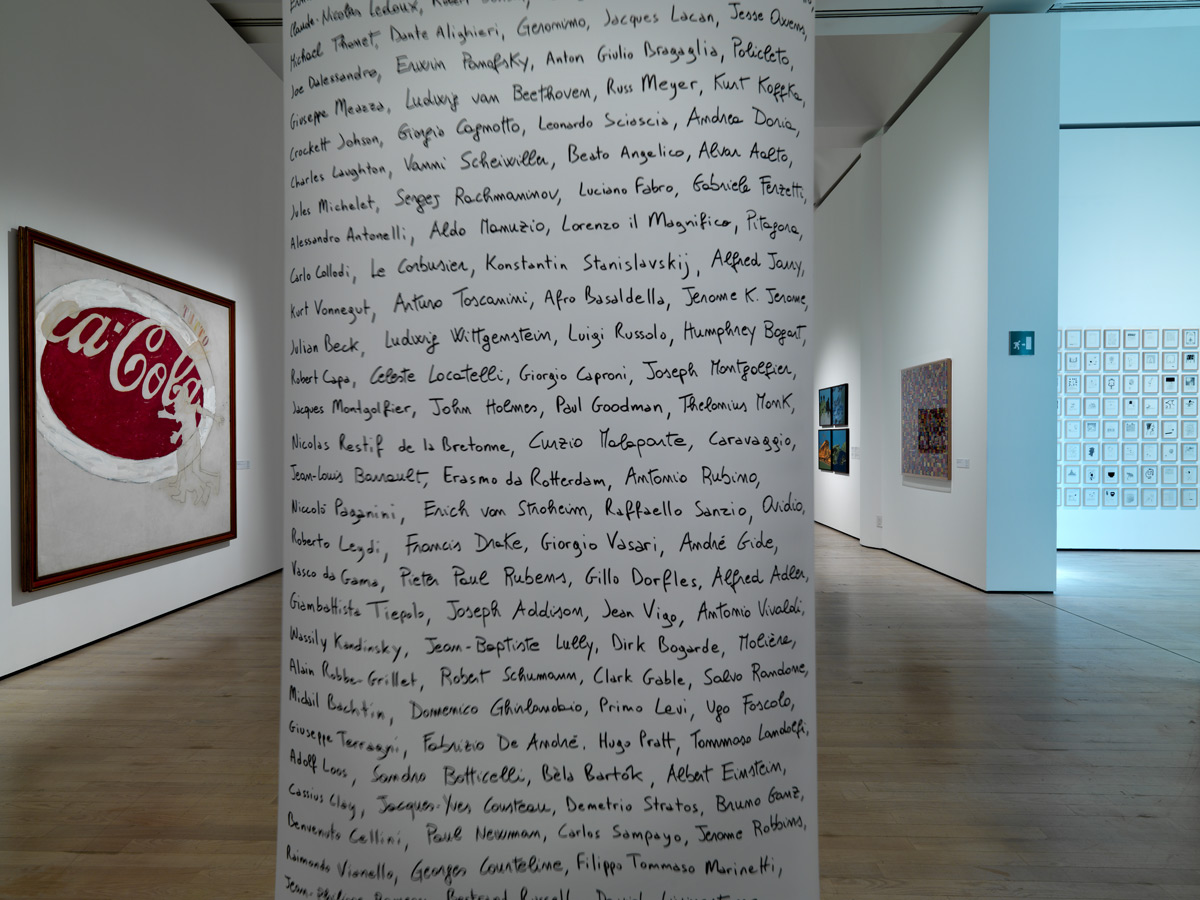 Claude-Nicolas Ledoux,
Michael Thonet, Dante Alighieri, Geronimo, Jacques Lacan, Jesse Owens,
Joe Dalessandro, Erwin Panofsky, Anton Giulio Bragaglia, Policleto,
Giuseppe Meazza, Ludwig van Beethoven, Russ Meyer, Kurt Koffka,
Crockett Johson, Giorgio Cagnotto, Leonardo Sciascia, Andrea Doria,
Charles Laughton, Vanni Scheiwiller, Beato Angelico, Alvar Aalto,
Jules Michelet, Sergej Rachmaninov, Luciano Fabro, Gabriele Ferzetti,
Alessandro Antonelli, Aldo Manuzio, Lorenzo il Magnifico, Pitagora,
Carlo Collodi, Le Corbusier, Konstantin Stanislavskij, Alfred Jarry,
Kurt Vonnegut, Arturo Toscanini, Afro Basaldella, Jerome K. Jerome,
Julian Beck, Ludwig Wittgenstein, Luigi Russolo, Humphrey Bogart,
Robert Capa, Celeste Locatelli, Giorgio Caproni, Joseph Montgolfier,
Jacques Montgolfier, John Holmes, Paul Goodman, Thelonius Monk,
Nicolas Restif de la Bretonne, Curzio Malaparte, Caravaggio,
Jean-Louis Barrault, Erasmo da Rotterdam, Antonio Rubino,
Niccolò Paganini, Erich von Stroheim, Raffaello Sanzio, Ovidio,
Roberto Leydi, Francis Drake, Giorgio Vasari, André Gide,
Vasco da Gama, Pieter Paul Rubens, Gillo Dorfles, Alfred Adler,
Giambattista Tiepolo, Joseph Addison, Jean Vigo, Antonio Vivaldi,
Wassily Kandinsky, Jean-Baptiste Lully, Dirk Bogarde, Molière,
Alain Robbe-Grillet, Robert Schumann, Clark Gable, Salvo Randone,
Michail Bachtin, Domenico Ghirlandaio, Primo Levi, Ugo Foscolo,
Giuseppe Terragni, Fabrizio De André, Hugo Pratt, Tommaso Landolfi,
Adolf Loos, Sandro Botticelli, Bèla Bartók, Albert Einstein,
Cassius Clay, Jacques-Yves Cousteau, Demetrio Stratos, Bruno Ganz,
Benvenuto Cellini, Paul Newman, Carlos Sampayo, Jerome Robbins,
Raimondo Vianello, Georges Courteline, Filippo Tommaso Marinetti,
Bertrand Russell,
ca-Cola